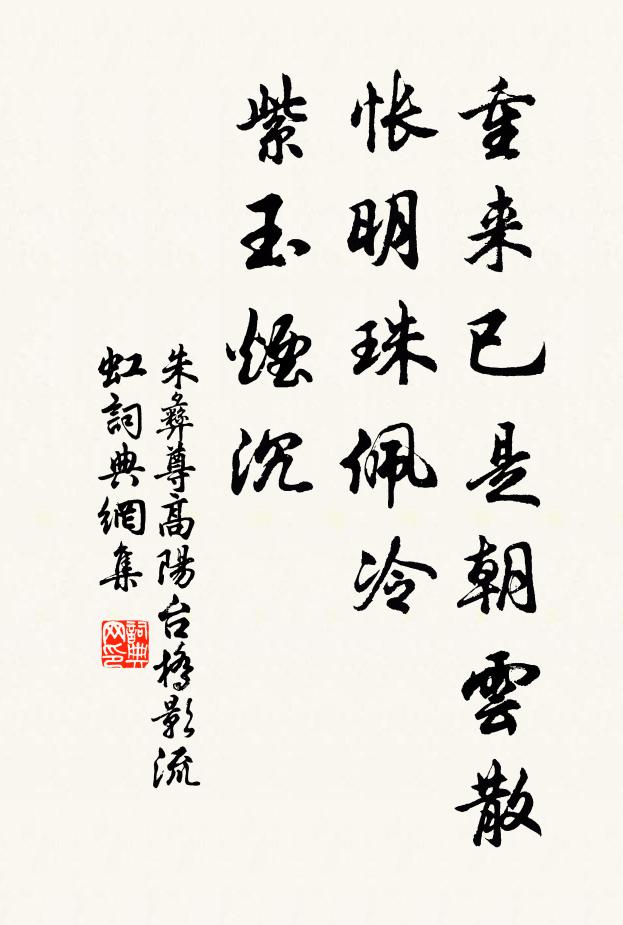 重来已是朝雲散
怅明珠佩冷
紫玉煙沉
朱彝尊高陽台橋影流
虹詞典網集
詞典网印